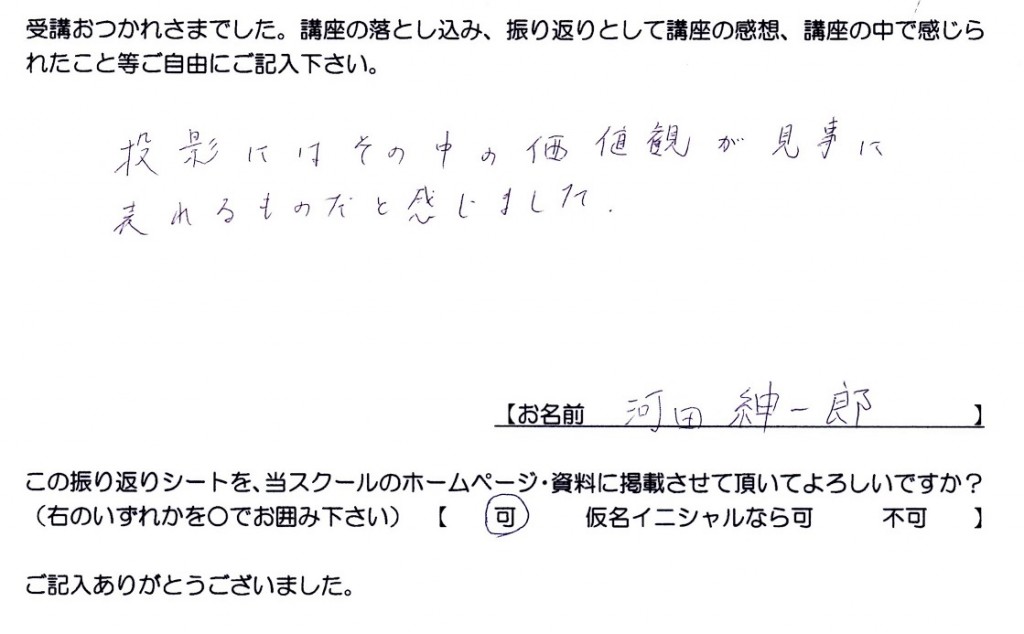 受講おつかれさまでした。講座の落とし込み、振り返りとして講座の感想、講座の中で感じら
れたこと等ご自由にご記入下さい。
投影にはその中の価値観が見事に
表れるものだと感じました.
【お名前 河田紳一郎 】
この振り返りシートを、当スクールのホームページ・資料に掲載させて頂いてよろしいですか？
（右のいずれかを〇でお囲み下さい）【 可 仮名イニシャルなら可 不可 】
ご記入ありがとうございました。